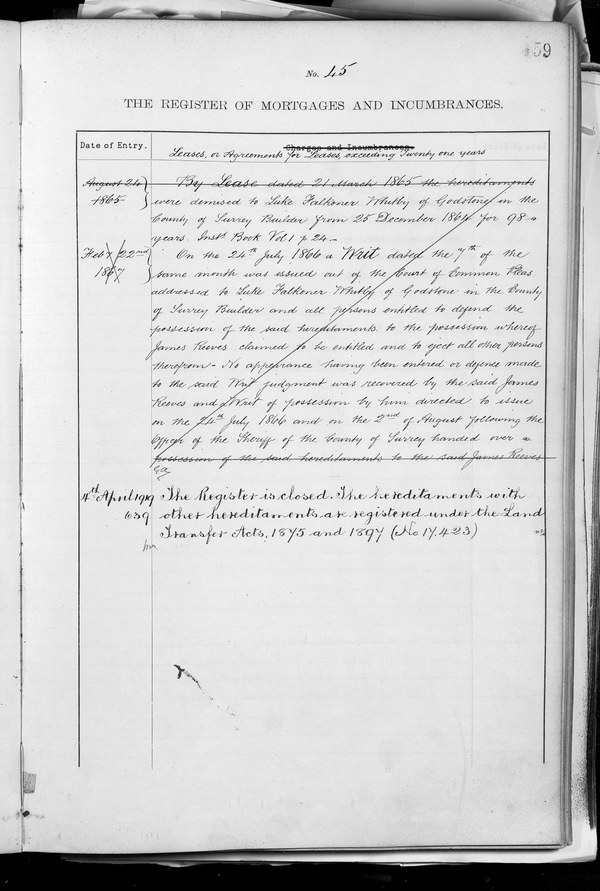 59
No. 45
THE REGISTER OF MORTGAGES AND INCUMBRANCES.
Date of Entry.
Charges and Incumbrances.
Leases, or Agreements for Leases, exceeding Twenty one years
August 24 1865
By Lease dated 21 March 1865 the hereditaments
were demised to Luke Falkener Whitby of Godstone in the
County of Surrey Builder from 25 December 1864 for 98
years. Inst. Book Vol 1 p 24
Feby 22nd 1867
On the 24th July 1866 a Writ dated the 7th of the
same month was issued out of the Court of Common Pleas
addressed to Luke Falkener Whitby of Godstone in the County
of Surrey Builder and all persons entitled to defend the
possession of the said hereditaments to the possession whereof
James Reeves claimed to be entitled and to eject all other persons
therefrom - No appearance having been entered or defence made
to the said Writ judgment was recovered by the said James
Reeves and Writ of possession by him directed to issue
on the 24th July 1866 and on the 2nd of August following the
Officer of the Sheriff of the County of Surrey handed over
possession of the said hereditaments to the said James Reeves
4th April 1919
The Register is closed. The hereditaments with
639
other hereditaments are registered under the Land
Transfer Acts, 1875 and 1897 (No 17,423)